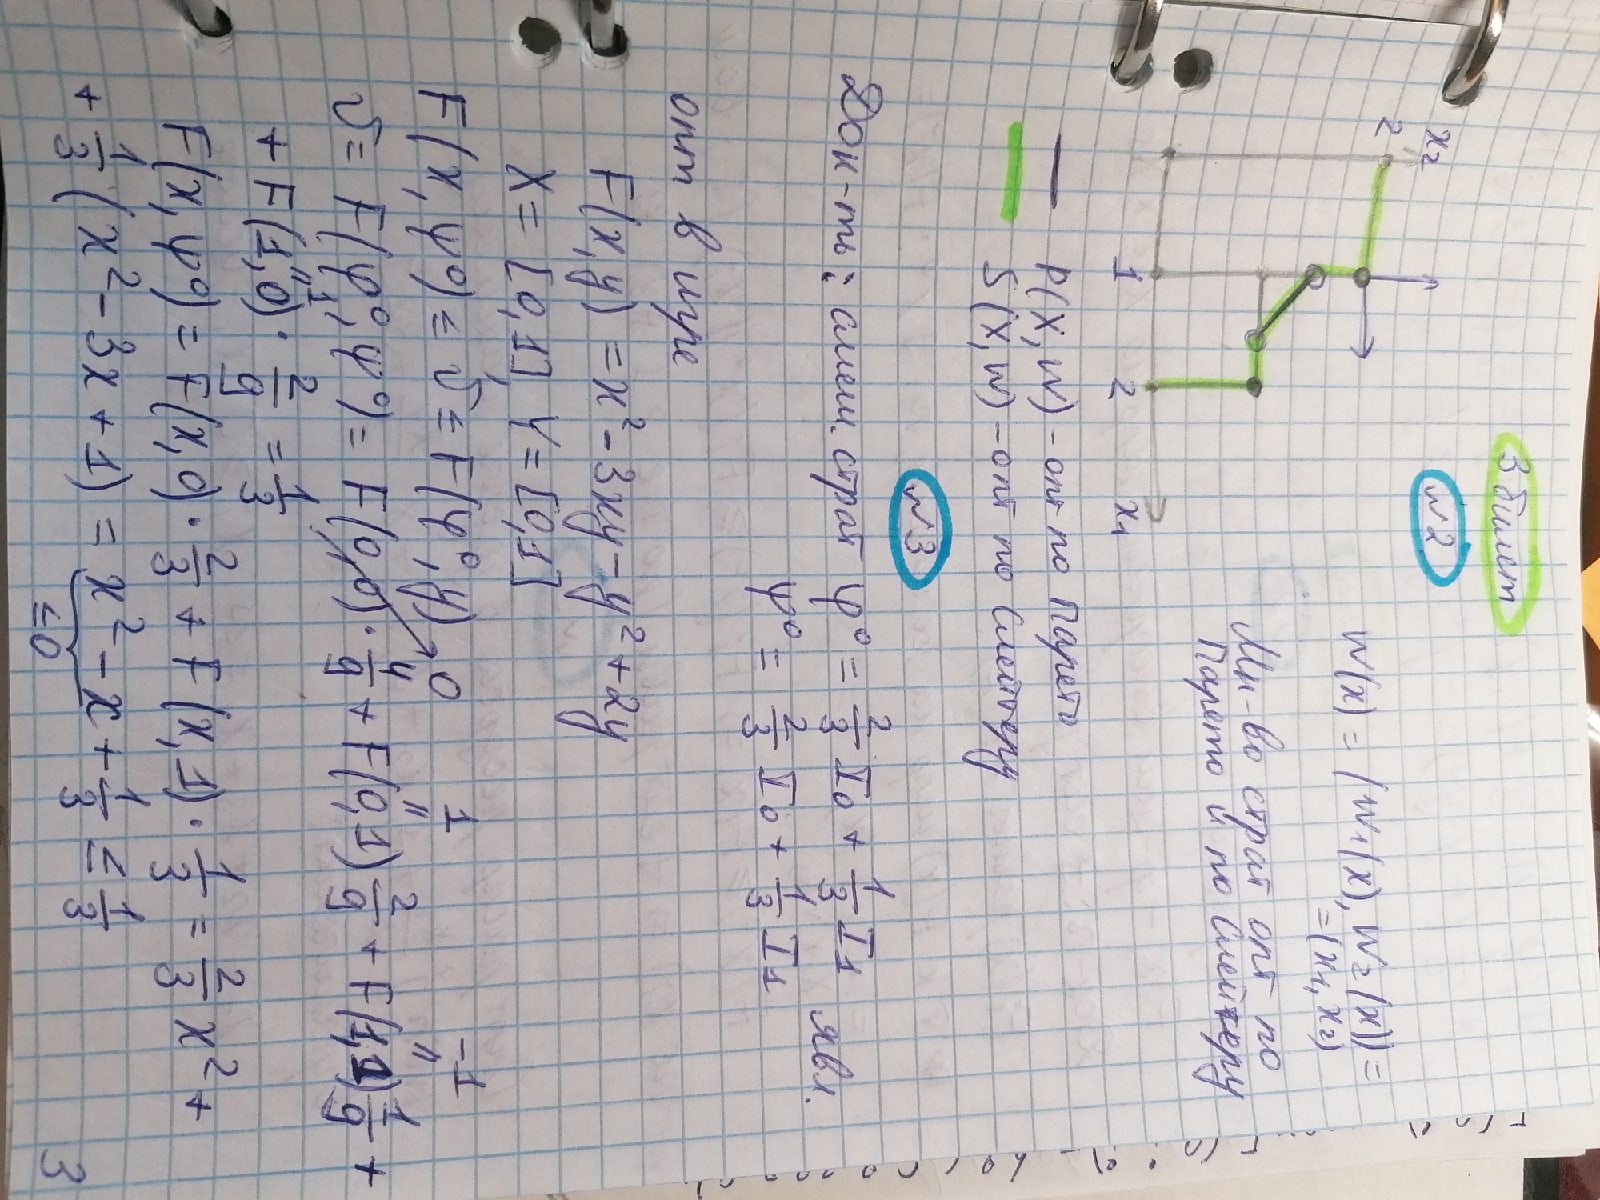 3 билет
№2
x₂
2
1
2
x₁
W(x) = (W₁(x), W₂(x)) =
= (x₁, x₂)
Мн-во страт опт по
Парето и по Слейтеру
P(X, W) - опт по Парето
S(X, W) - опт по Слейтеру
№3
Док-ть: смеш. страт φ⁰ = 2/3 I₀ + 1/3 I₁
ψ⁰ = 2/3 I₀ + 1/3 I₁ явл.
опт в игре
F(x, y) = x² - 3xy - y² + 2y
X = [0, 1], Y = [0, 1]
F(x, ψ⁰) ≤ v ≤ F(φ⁰, y)
v = F(φ⁰, ψ⁰) = F(0, 0) · 4/9 + F(0, 1) 2/9 + F(1, 1) 1/9 +
0 1 -1
+ F(1, 0) · 2/9 = 1/3
1
F(x, ψ⁰) = F(x, 0) · 2/3 + F(x, 1) · 1/3 = 2/3 x² +
+ 1/3 (x² - 3x + 1) = x² - x + 1/3 ≤ 1/3
≤ 0
3